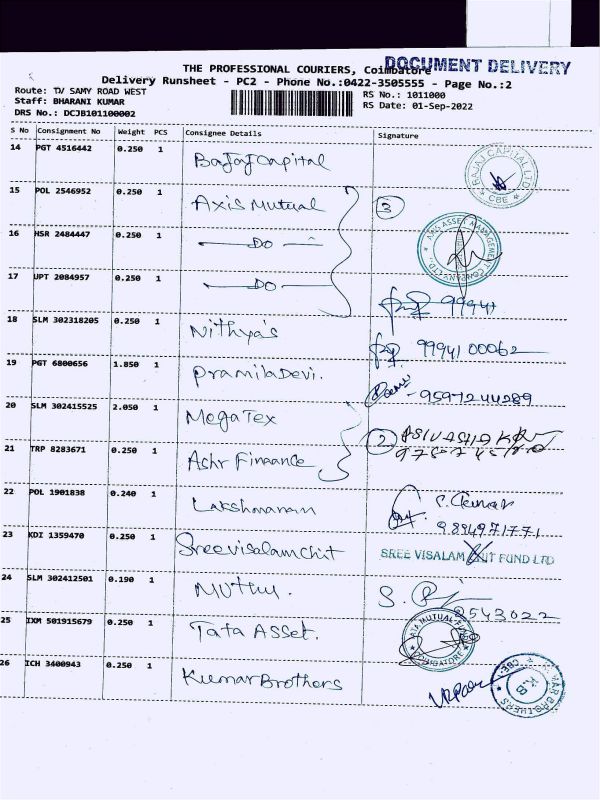 DOCUMENT DELIVERY
THE PROFESSIONAL COURIERS, Coimbatore
Delivery Runsheet - PC2 - Phone No.:0422-3505555 - Page No.:2
Route: TV SAMY ROAD WEST
RS No.: 1011000
Staff: BHARANI KUMAR
RS Date: 01-Sep-2022
DRS No.: DCJB101100002
S No Consignment No Weight PCS Consignee Details Signature
14 PGT 4516442 0.250 1 Bajaj Capital
BAJAJ CAPITAL LTD CBE
15 POL 2546952 0.250 1 Axis Mutual 3
16 HSR 2484447 0.250 1 - Do -
ASSET MANAGEMENT COMPANY LTD.
17 UPT 2084957 0.250 1 - Do -
99941
18 SLM 302318205 0.250 1 Nithya's
99941 00062
19 PGT 6800656 1.850 1 Pramila Devi.
9597244289
20 SLM 302415525 2.050 1 Mega Tex 2
21 TRP 8283671 0.250 1 Finance
22 POL 1901838 0.240 1 Lakshmanan
9894971771
23 KDI 1359470 0.250 1 Sreevisalam Chit SREE VISALAM CHIT FUND LTD
24 SLM 302412501 0.190 1 Muthu.
2543022
25 IXM 501915679 0.250 1 Tata Asset.
TATA MUTUAL FUND COIMBATORE
26 ICH 3400943 0.250 1 Kumar Brothers
K.B CBE